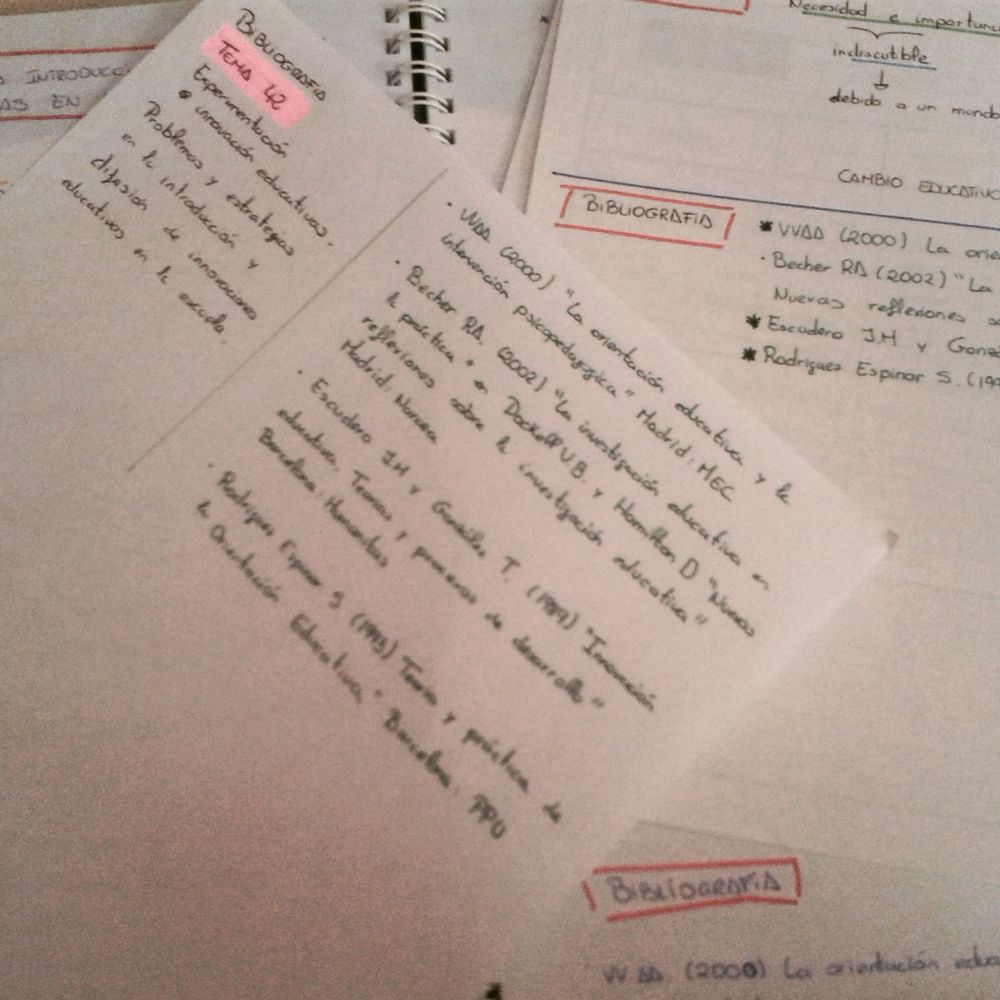 INTRODUCC
AS EN
BIBLIOGRAFIA
TEMA 42
Experimentación
e innovación educativas.
Problemas y estrategias
en la introducción y
difusión de innovaciones
educativas en la escuela.
· VVAA (2000) "La orientación educativa y la
intervención psicopedagógica" Madrid: MEC
· Becher RA. (2002) "La investigación educativa en
la práctica" en Dockell V.B. y Hamilton D "Nuevas
reflexiones sobre la investigación educativa"
Madrid: Narcea
· Escudero J.M y González T. (1987) "Innovación
educativa. Teorías y procesos de desarrollo"
Barcelona: Humanitas
· Rodrigues Espinar S (1993) Teoría y práctica de
la Orientación Educativa" Barcelona: PPU
Necesidad e importanc
indiscutible
↓
debido a un mundo
CAMBIO EDUCATIVO
BIBLIOGRAFIA
* VVAA (2000) La orie
· Becher RA (2002) "La
Nuevas reflexiones s
* Escudero J.M y Gonz
* Rodrigues Espinar S. (199
BIBLIOGRAFIA
VVAA (2000) La orientación educa